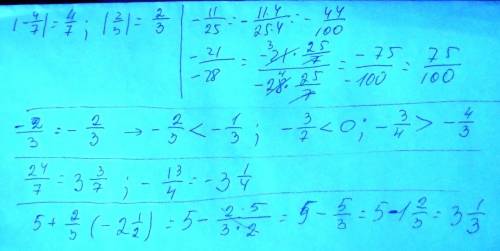 |-4/7| = 4/7 ; |2/3| = 2/3
-11/25 = -11·4/25·4 = -44/100
-21/-28 = (-21 · 25/7)/(-28 · 25/7) = -75/-100 = 75/100
-2/3 = -2/3 → -2/3 < -1/3 ; -3/7 < 0 ; -3/4 > -4/3
24/7 = 3 3/7 ; -13/4 = -3 1/4
5 + 2/3 (-2 1/2) = 5 - 2·5/3·2 = 5 - 5/3 = 5 - 1 2/3 = 3 1/3